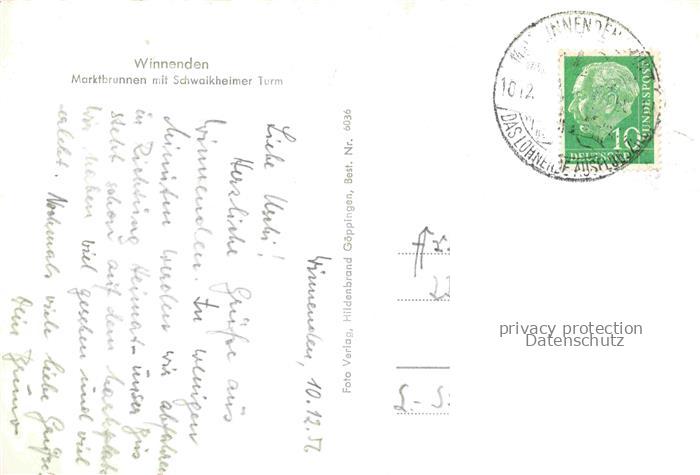 Winnenden
Marktbrunnen mit Schwaikheimer Turm
Winnenden, 10.12.56
Liebe Uschi!
Herzliche Grüße aus
Winnenden. In wenigen
Minuten werden wir abfahren
in Richtung Heimat - unser Bus
steht schon auf dem Marktplatz
Wir haben viel gesehen und viel
erlebt. Nochmals viele liebe Grüße
Dein Bruno
Foto Verlag, Hildenbrand Göppingen, Best. Nr. 6036
WINNENDEN
10.12
DAS LOHNENDE AUSFLUGSZIEL
10
DEUTSCHE
BUNDESPOST
privacy protection
Datenschutz